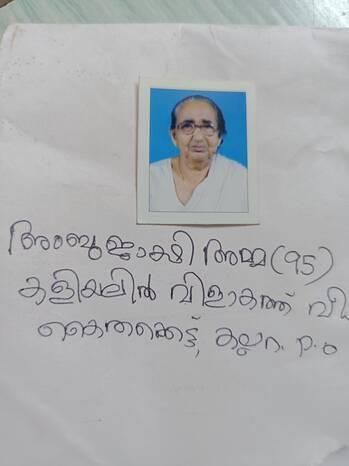 അംബുജാക്ഷി അമ്മ (95)
കളിയലിൽ വിളാകത്ത് വീ
കൈതക്കെട്ട്, കല്ലറ. P.O